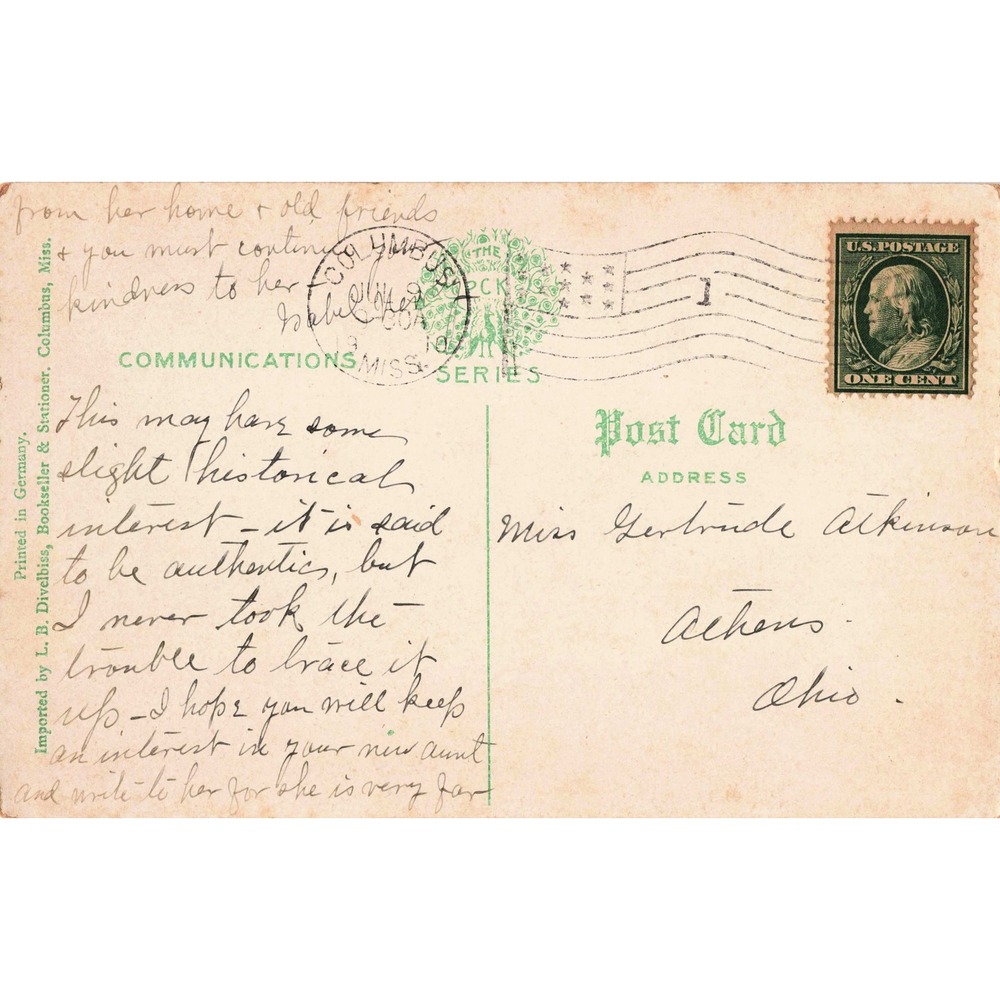 from her home & old friends
& you must continue your
kindness to her
Isabel
COLUMBUS
9
MISS.
THE
PCK
SERIES
1
U.S. POSTAGE
ONE CENT
COMMUNICATIONS
Post Card
ADDRESS
This may have some
slight historical
interest – it is said
to be authentic, but
I never took the
trouble to trace it
up – I hope you will keep
an interest in your new aunt
and write to her for she is very far
Miss Gertrude Atkinson
Athens.
Ohio.
Printed in Germany.
Imported by L. B. Divelbiss, Bookseller & Stationer, Columbus, Miss.